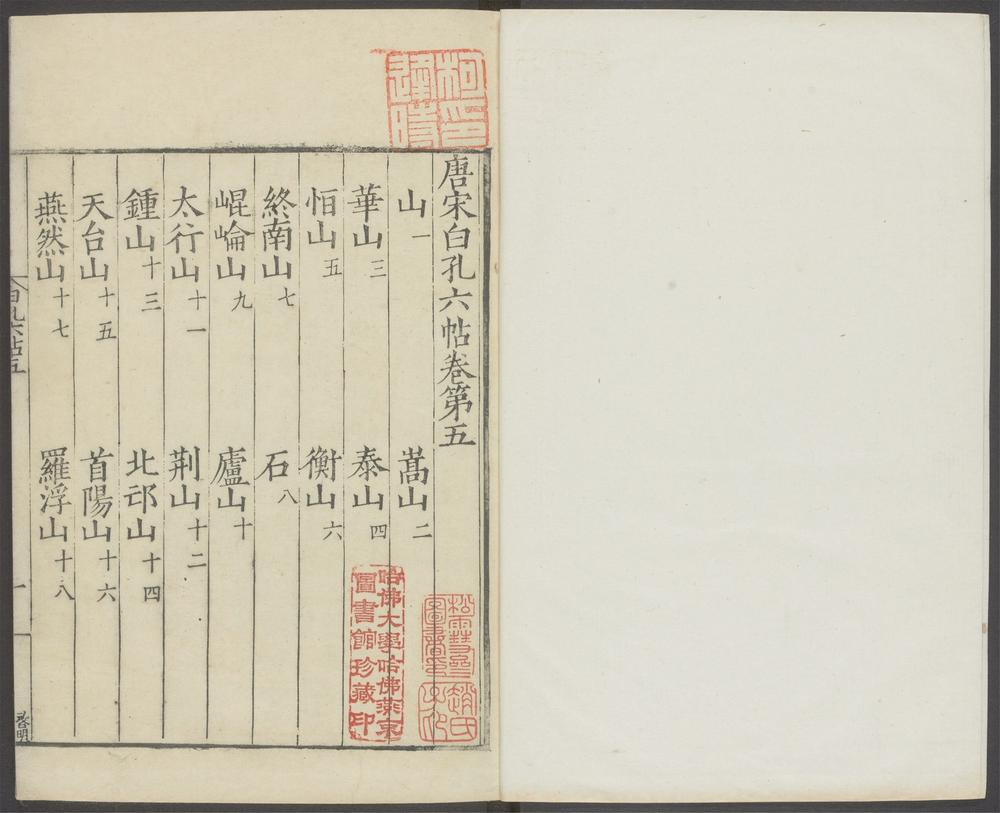 唐宋白孔六帖卷第五
山一 嵩山二
華山三 泰山四
恒山五 衡山六
終南山七 石八
崐崘山九 廬山十
太行山十一 荆山十二
鍾山十三 北邙山十四
天台山十五 首陽山十六
燕然山十七 羅浮山十八
白孔六帖五
一
啓明
柯印
逢時
哈佛大學哈佛燕京
圖書館珍藏印
趙氏